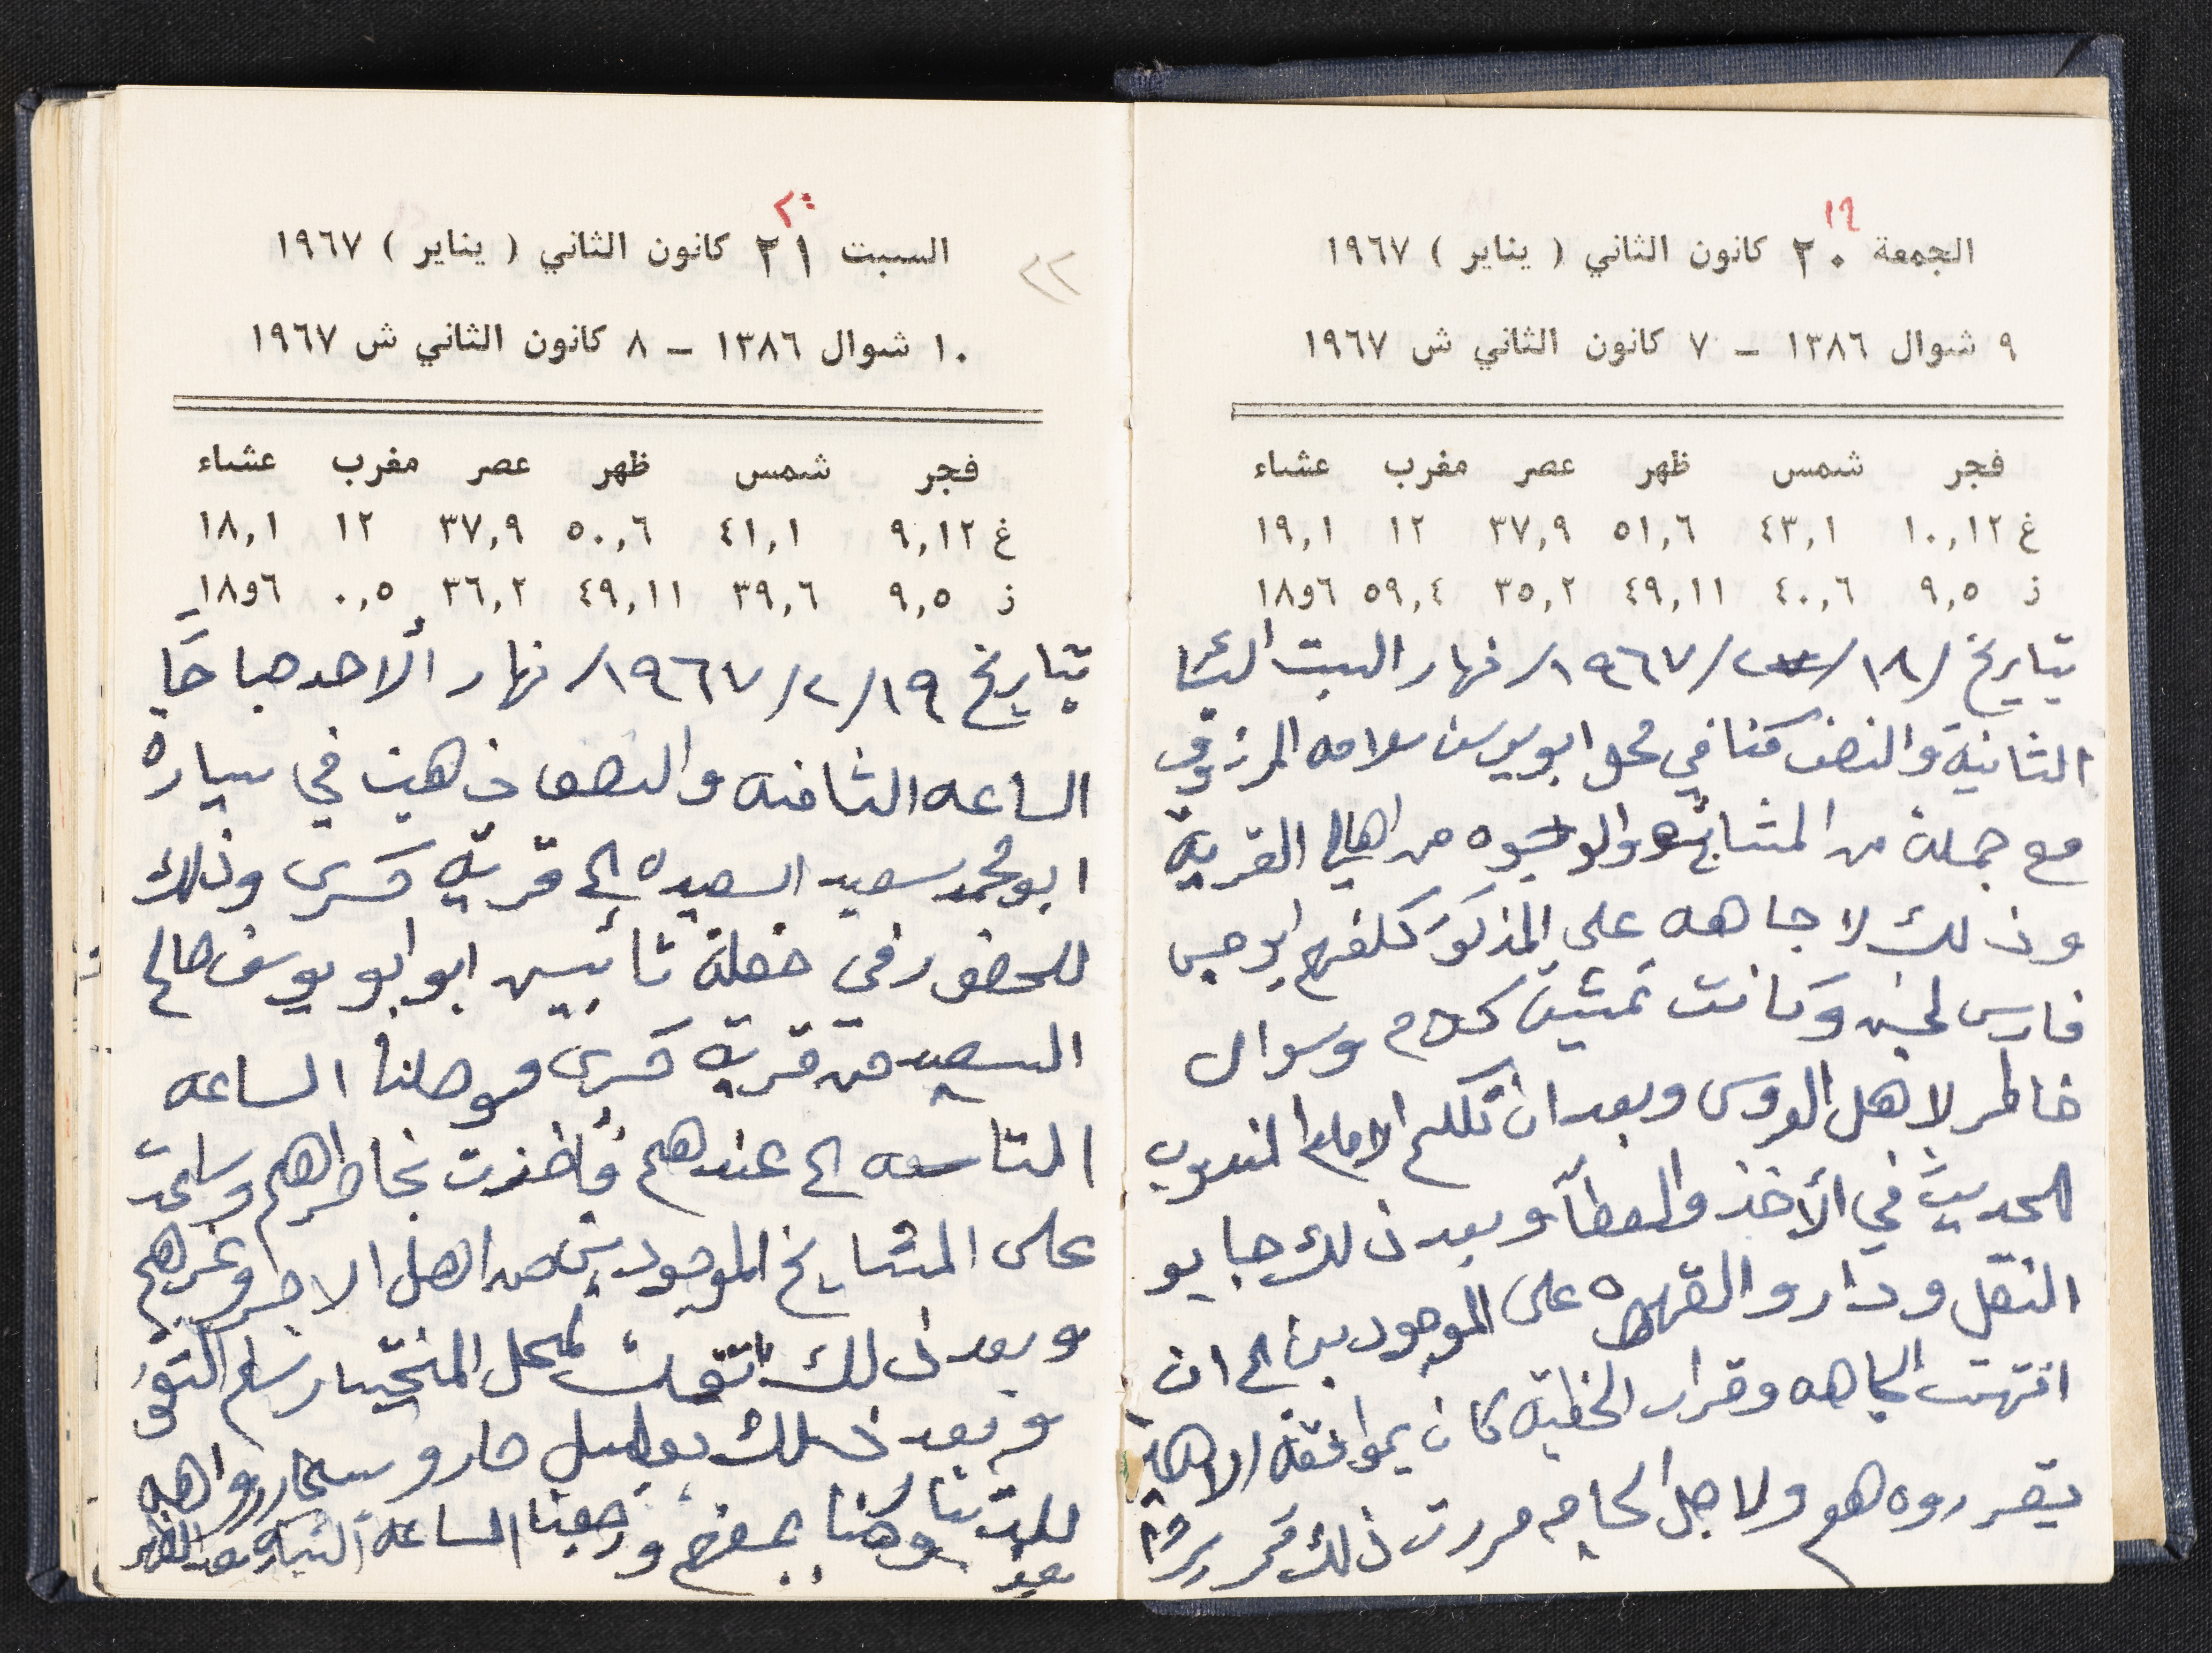 ١٩
الجمعة ٢٠ كانون الثاني ( يناير ) ١٩٦٧
٩ شوال ١٣٨٦ – ٧ كانون الثاني ش ١٩٦٧
فجر شمس ظهر عصر مغرب عشاء
غ ١٠,١٢ ٤٣,١ ٥١,٦ ٣٧,٩ ١٢ ١٩,١
ز ٩,٥ ٤٠,٦ ٤٩,١١ ٣٥,٢ ٥٩,٤ ٦و١٨
بتاريخ /١٨/ ٢/١٩٦٧/ نهار السبت
الثانية والنصف كنا في محل ابو يوسف سلامه المرزوقي
مع جملة من المشايخ والوجوه من اهالي القرية
وذلك لاجاهه على المذكور كلفهم ابو حسن
فارس وكانت كلام وسوال
خاطر لاهل العروس وبعد ان تكلم الامام المندوب
الحديث في الأخذ والعطآ وبعد ذلك جابو
النقل ودارو القهوه على الموجودين الى ان
انتهت الجاهه وقرار الخطبه كان بموافقة الاهل
يقرروه هم ولاجل حررت ذلك
٢٠
السبت ٢١ كانون الثاني ( يناير ) ١٩٦٧
٢٢
١٠ شوال ١٣٨٦ – ٨ كانون الثاني ش ١٩٦٧
فجر شمس ظهر عصر مغرب عشاء
غ ٩,١٢ ٤١,١ ٥٠,٦ ٣٧,٩ ١٢ ١٨,١
ز ٩,٥ ٣٩,٦ ٤٩,١١ ٣٦,٢ ٠,٥ ٦و١٨
بتاريخ ١٩/٢/١٩٦٧/ نهار ألاحد صباحاً
الساعه الثامنه والنصف ذهبت في سياره
ابو محمد سعيد السعيد الى قرية كسرى وذلك
للحضور في حفلة تأبين ابو ابو يوسف صالح
السعيد من قرية كسرى فوصلنا الساعه
التاسعه الى عندهم فأخذت بخاطرهم وسلمت
على المشايخ الموجودين من اهل وغيرهم
وبعد ذلك لمحل المختيار
وبعد ذلك
وهنا ورجعنا الساعه بعد الظهر